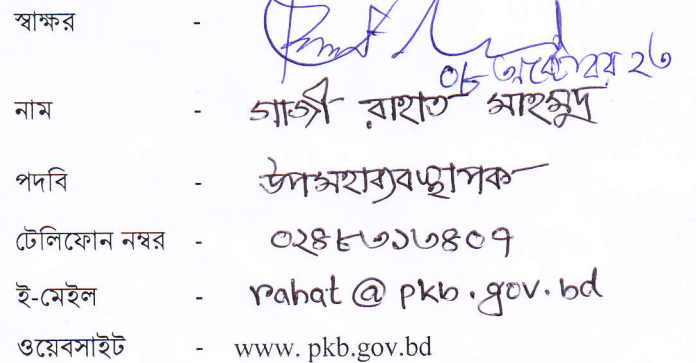 স্বাক্ষর -
০৮ অক্টোবর ২৩
নাম - গাজী রাহাত মাহমুদ
পদবি - উপমহাব্যবস্থাপক
টেলিফোন নম্বর - ০২৪৮৩১৬৪০৭
ই-মেইল - rahat@pkb.gov.bd
ওয়েবসাইট - www. pkb.gov.bd